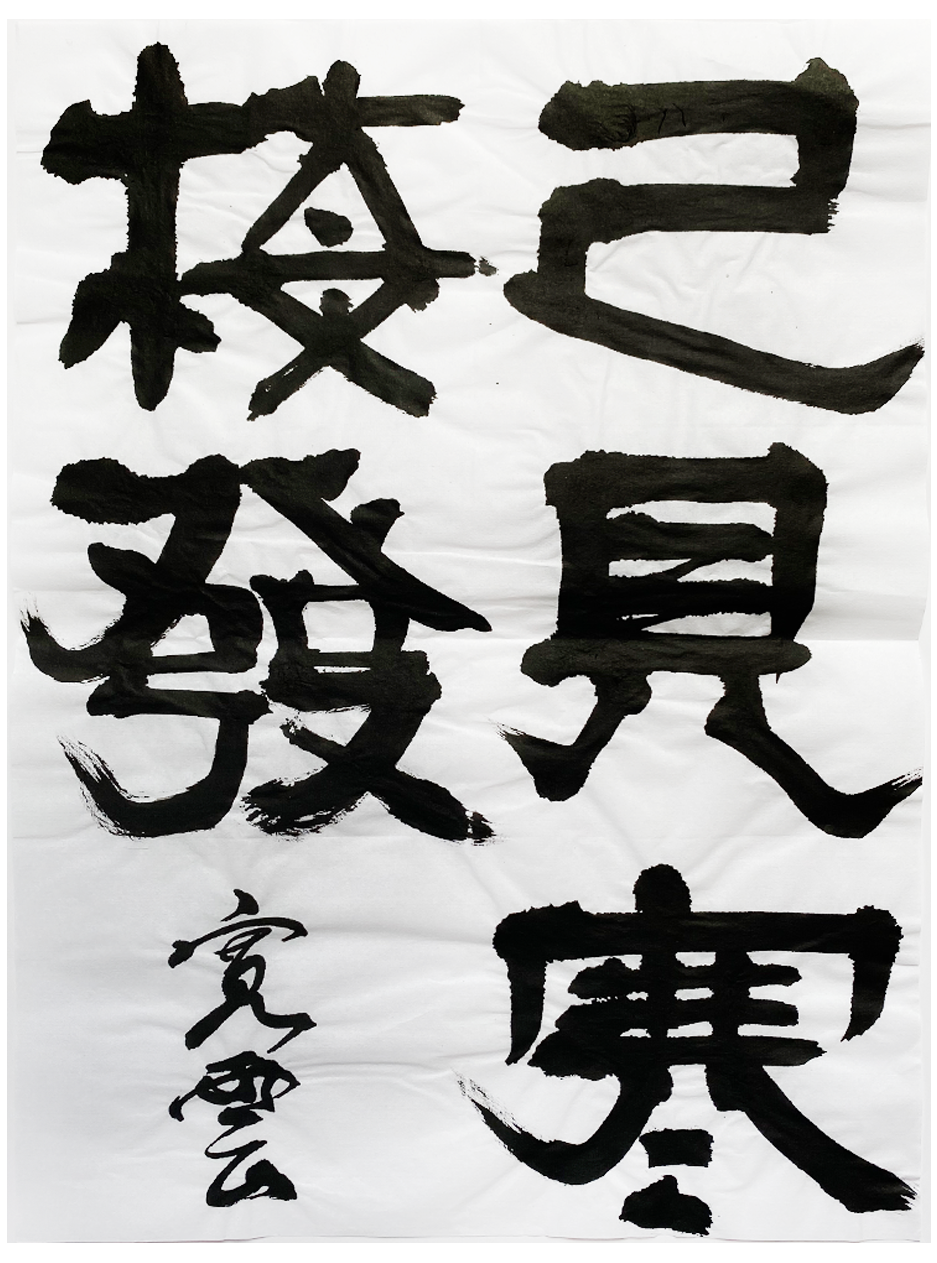 已見寒
梅發
寛雲